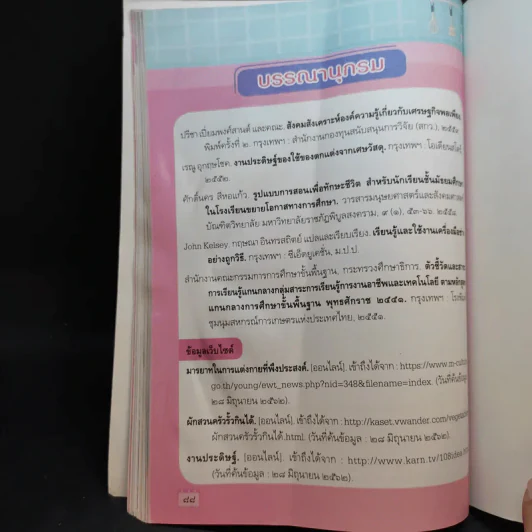 บรรณานุกรม
ปรีชา เปี่ยมพงศ์สานต์ และคณะ. สังคมสังเคราะห์องค์ความรู้เกี่ยวกับเศรษฐกิจพอเพียง.
พิมพ์ครั้งที่ ๒. กรุงเทพฯ : สำนักงานกองทุนสนับสนุนการวิจัย (สกว.),
เรณู งานประดิษฐ์ของใช้ของตกแต่งจากเศษวัสดุ. กรุงเทพฯ : โอเดียนสโตร์,
๒๕๕๒.
ศักดิ์นคร สีหอแก้ว. รูปแบบการสอนเพื่อทักษะชีวิต สำหรับนักเรียนชั้นมัธยมศึกษา
ในโรงเรียนขยายโอกาสทางการศึกษา. วารสารมนุษยศาสตร์และสังคมศาสตร์
บัณฑิตวิทยาลัย มหาวิทยาลัยราชภัฏพิบูลสงคราม, ๙ (๑), ๕๓-๖๖. ๒๕๕๘.
John Kelsey. กฤษณา อินทรสถิตย์ แปลและเรียบเรียง. เรียนรู้และใช้งานเครื่องมือช่าง
อย่างถูกวิธี. กรุงเทพฯ : ซีเอ็ดยูเคชั่น, ม.ป.ป.
สำนักงานคณะกรรมการการศึกษาขั้นพื้นฐาน, กระทรวงศึกษาธิการ. ตัวชี้วัดและสาระ
การเรียนรู้แกนกลางกลุ่มสาระการเรียนรู้การงานอาชีพและเทคโนโลยี ตามหลักสูตร
แกนกลางการศึกษาขั้นพื้นฐาน พุทธศักราช ๒๕๕๑. กรุงเทพฯ : โรงพิมพ์
ชุมนุมสหกรณ์การเกษตรแห่งประเทศไทย, ๒๕๕๑.
ข้อมูลเว็บไซต์
มารยาทในการแต่งกายที่พึงประสงค์. [ออนไลน์]. เข้าถึงได้จาก : https://www.m-culture.
go.th/young/ewt_news.php?nid=348&filename=index. (วันที่ค้นข้อมูล
๒๘ มิถุนายน ๒๕๖๒).
ผักสวนครัวรั้วกินได้. [ออนไลน์]. เข้าถึงได้จาก : http://kaset.vwander.com/vegetable
ผักสวนครัวรั้วกินได้.html. (วันที่ค้นข้อมูล : ๒๘ มิถุนายน ๒๕๖๒).
งานประดิษฐ์. [ออนไลน์]. เข้าถึงได้จาก : http://www.karn.tv/108idea.html
(วันที่ค้นข้อมูล : ๒๘ มิถุนายน ๒๕๖๒).
๘๘